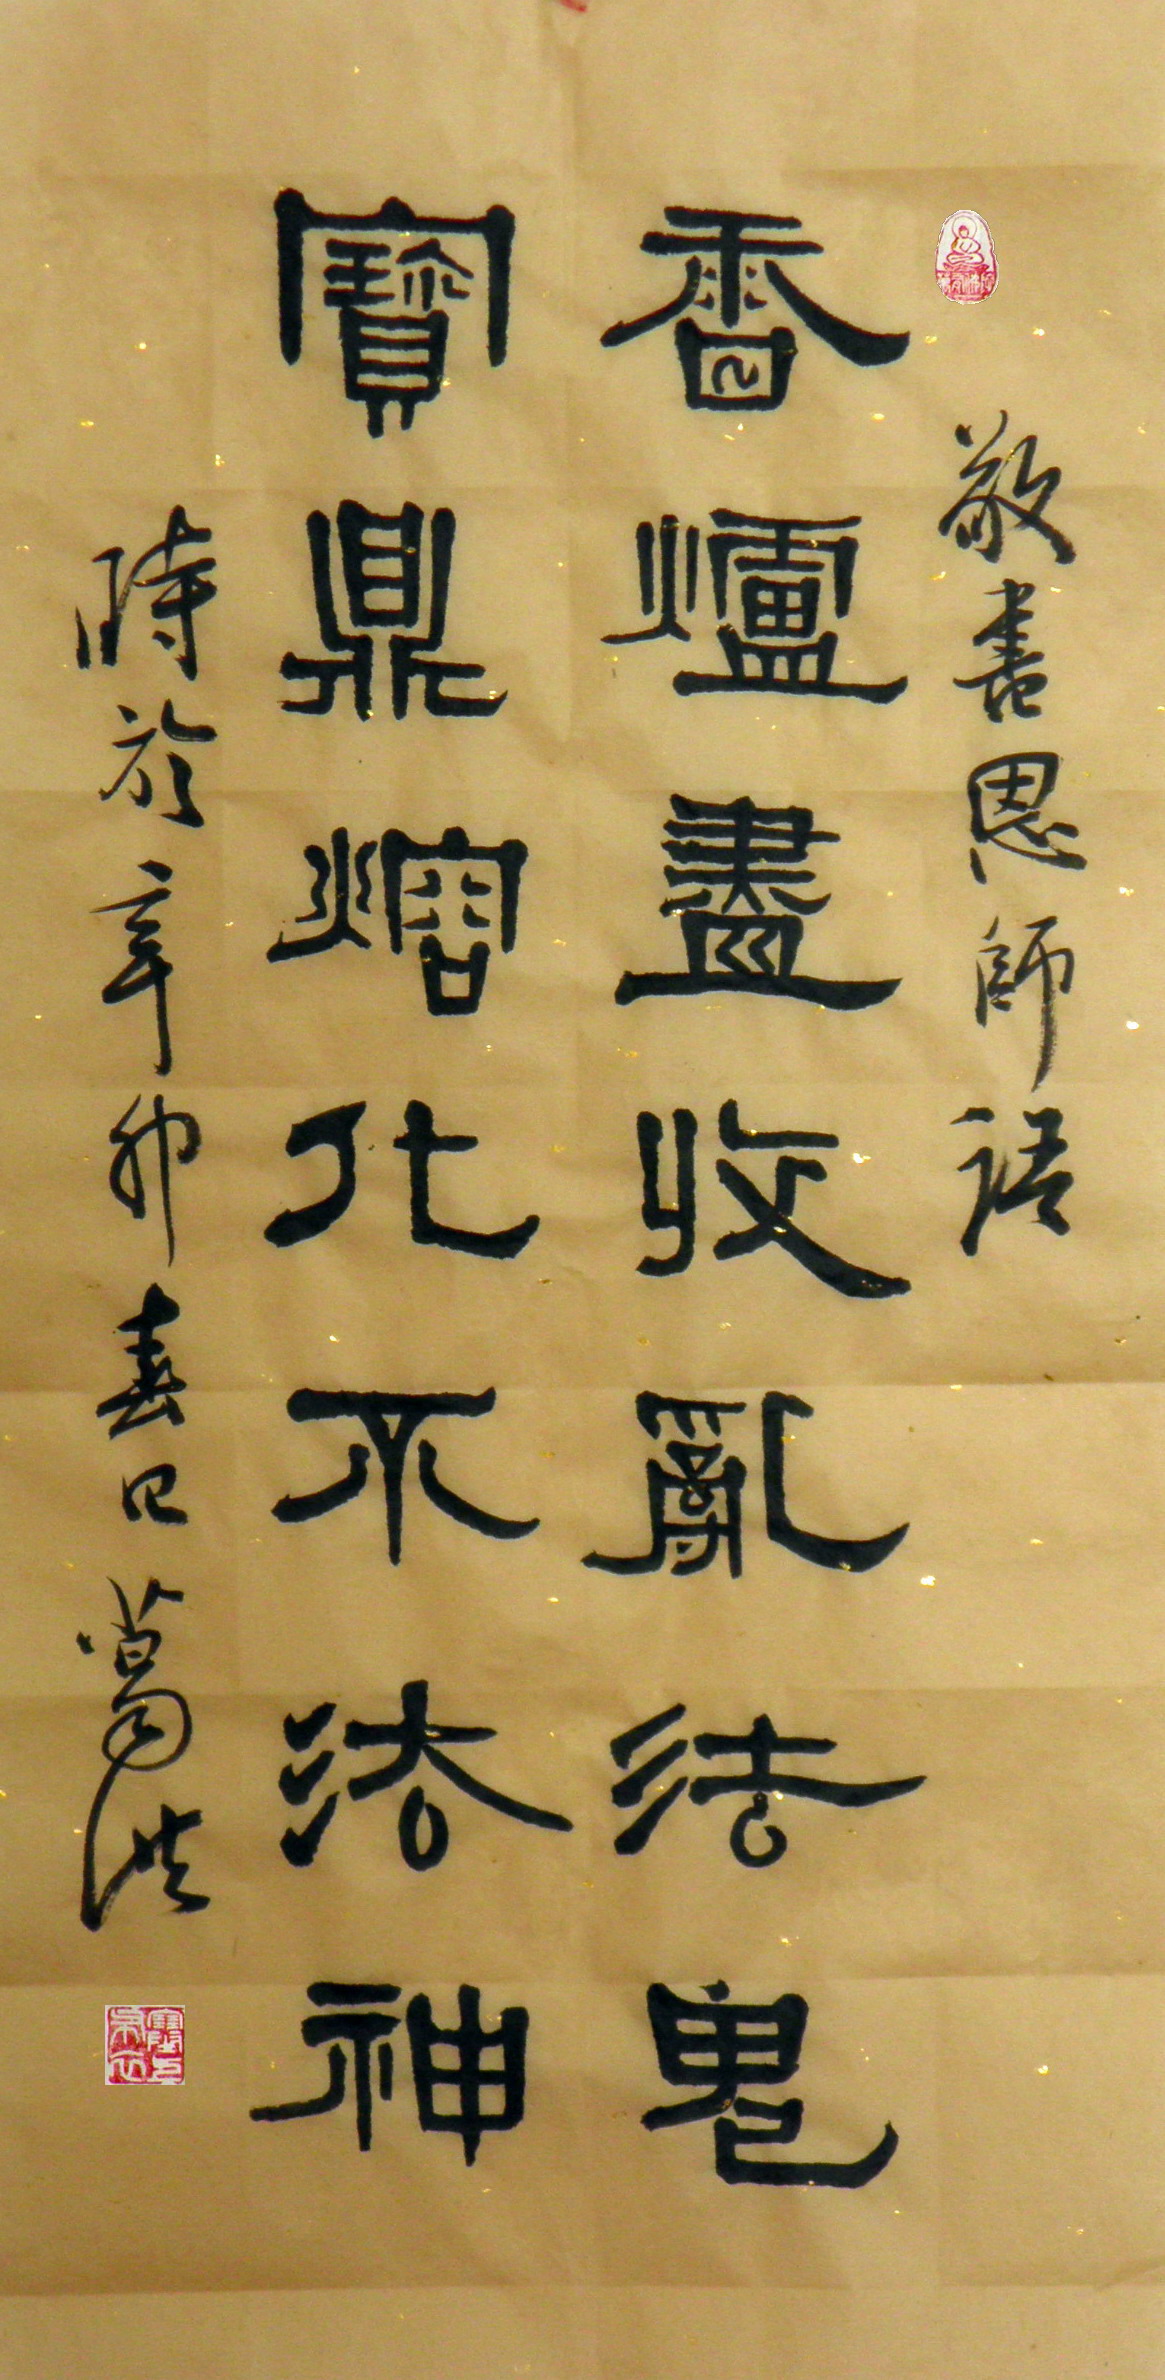 敬書恩師語
香爐盡收亂法鬼
寶鼎熔化不法神
時於辛卯春日葛洪